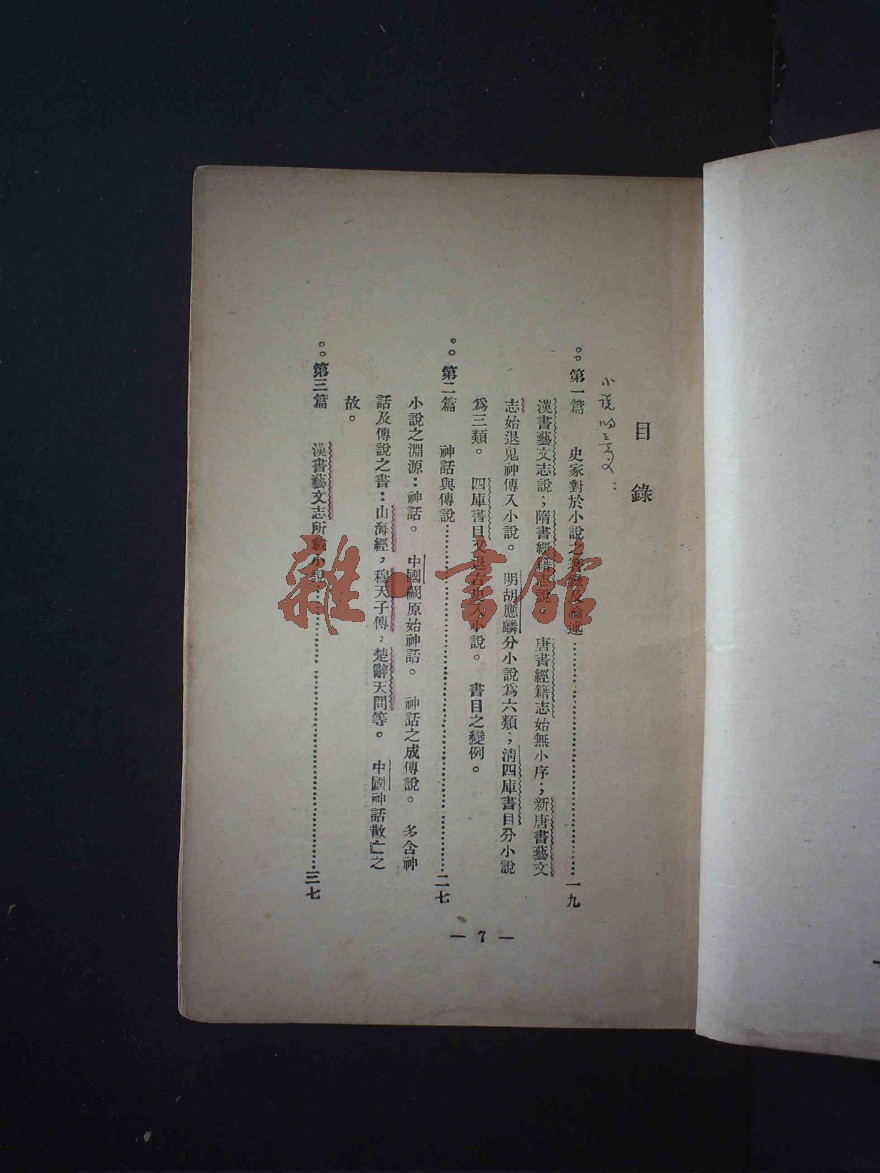 目錄
小说的意义：
第一篇 史家對於小說之著錄及論述……一九
漢書藝文志說；隋書經籍志說 唐書經籍志始無小序；新唐書藝文
志始退鬼神傳入小說。 明胡應麟分小說爲六類；清四庫書目分小說
爲三類。 四庫書目又退古史入小說。 書目之變例。
第二篇 神話與傳說……二七
小說之淵源：神話。 中國缺原始神話。 神話之成傳說。 多含神
話及傳說之書：山海經，穆天子傳，楚辭天問等。 中國神話散亡之
故。
第三篇 漢書藝文志所載小說……三七
— 7 —
雜·書館